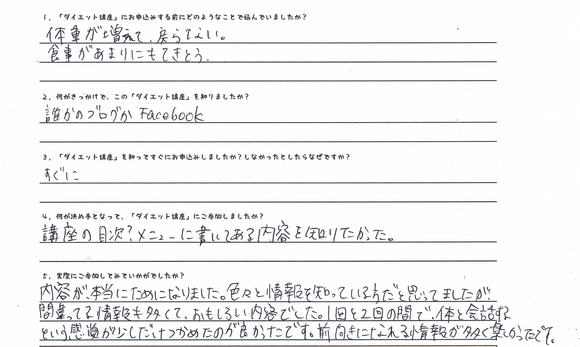 1．「ダイエット講座」にお申込みする前にどのようなことで悩んでいましたか？
体重が増えて、戻らない。
食事があまりにもてきとう、
2．何がきっかけで、この「ダイエット講座」を知りましたか？
誰かのブログか Facebook
3．「ダイエット講座」を知ってすぐにお申込みしましたか？しなかったとしたらなぜですか？
すぐに
4．何が決め手となって、「ダイエット講座」にご参加しましたか？
講座の目次？メニューに書いてある内容を知りたかった。
5．実際にご参加してみていかがでしたか？
内容が、本当にためになりました。色々と情報を知っている方だと思ってましたが、
間違ってる情報も多くて、おもしろい内容でした。1回と2回の間で、体と会話する
という感覚が少しだけつかめたのが良かったです。前向きになれる情報が多く楽しかったです。